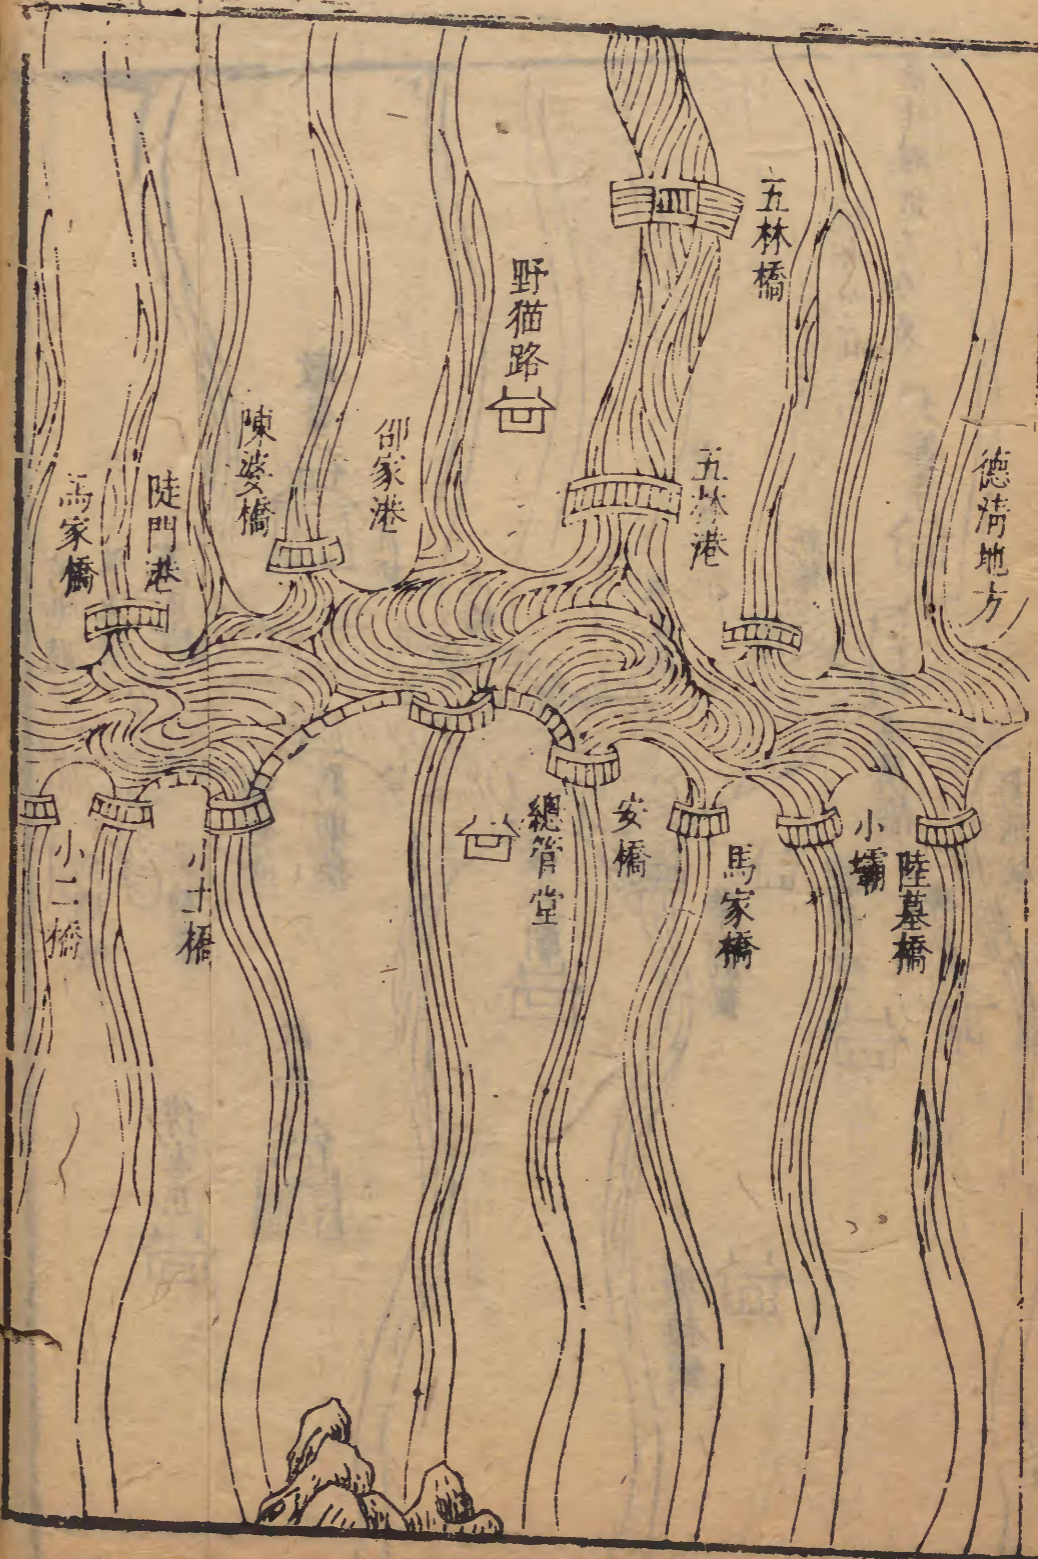 德清地方
五林橋
五林港
野猫路
邵家港
陳婆橋
陡門港
馬家橋
陸墓橋
小壩
馬家橋
安橋
總管堂
小十橋
小二橋